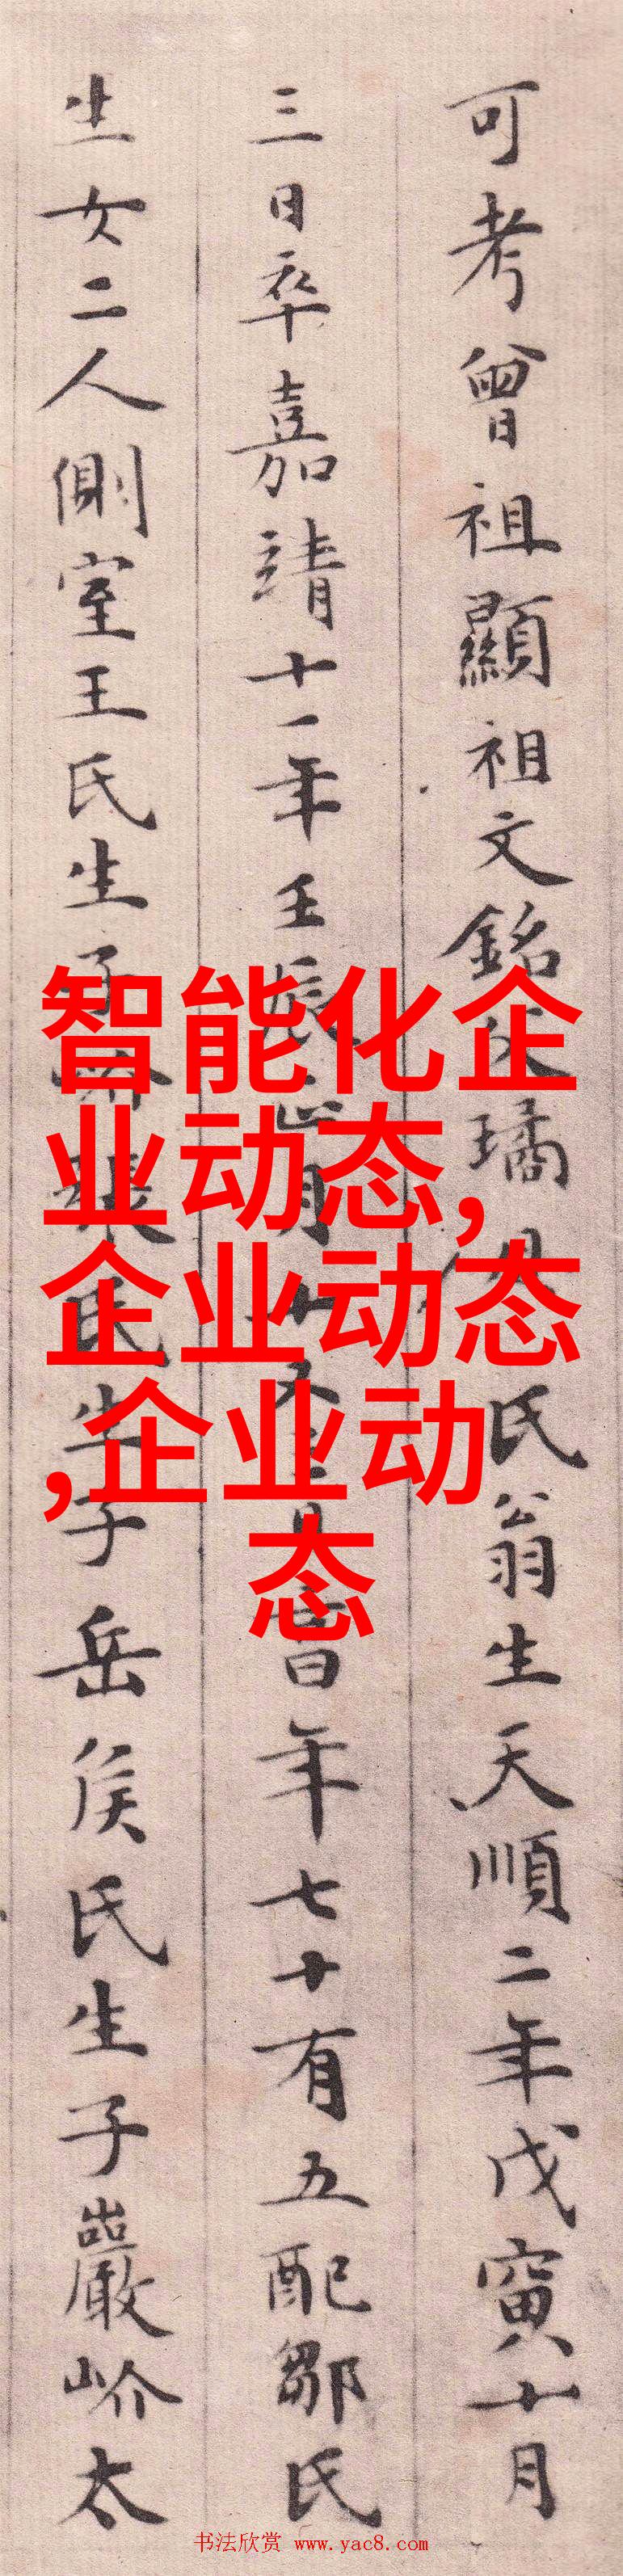 可考曾祖顯祖文銘父璚母氏翁生天順二年戊寅十月
三日卒嘉靖十一年壬辰正月年七十有五配鄒氏
生女二人側室王氏生子張氏生子岳侯氏生子巖岕太
智能化企
业动态,
企业动态
,企业动
态
书法欣赏 www.yac8.com